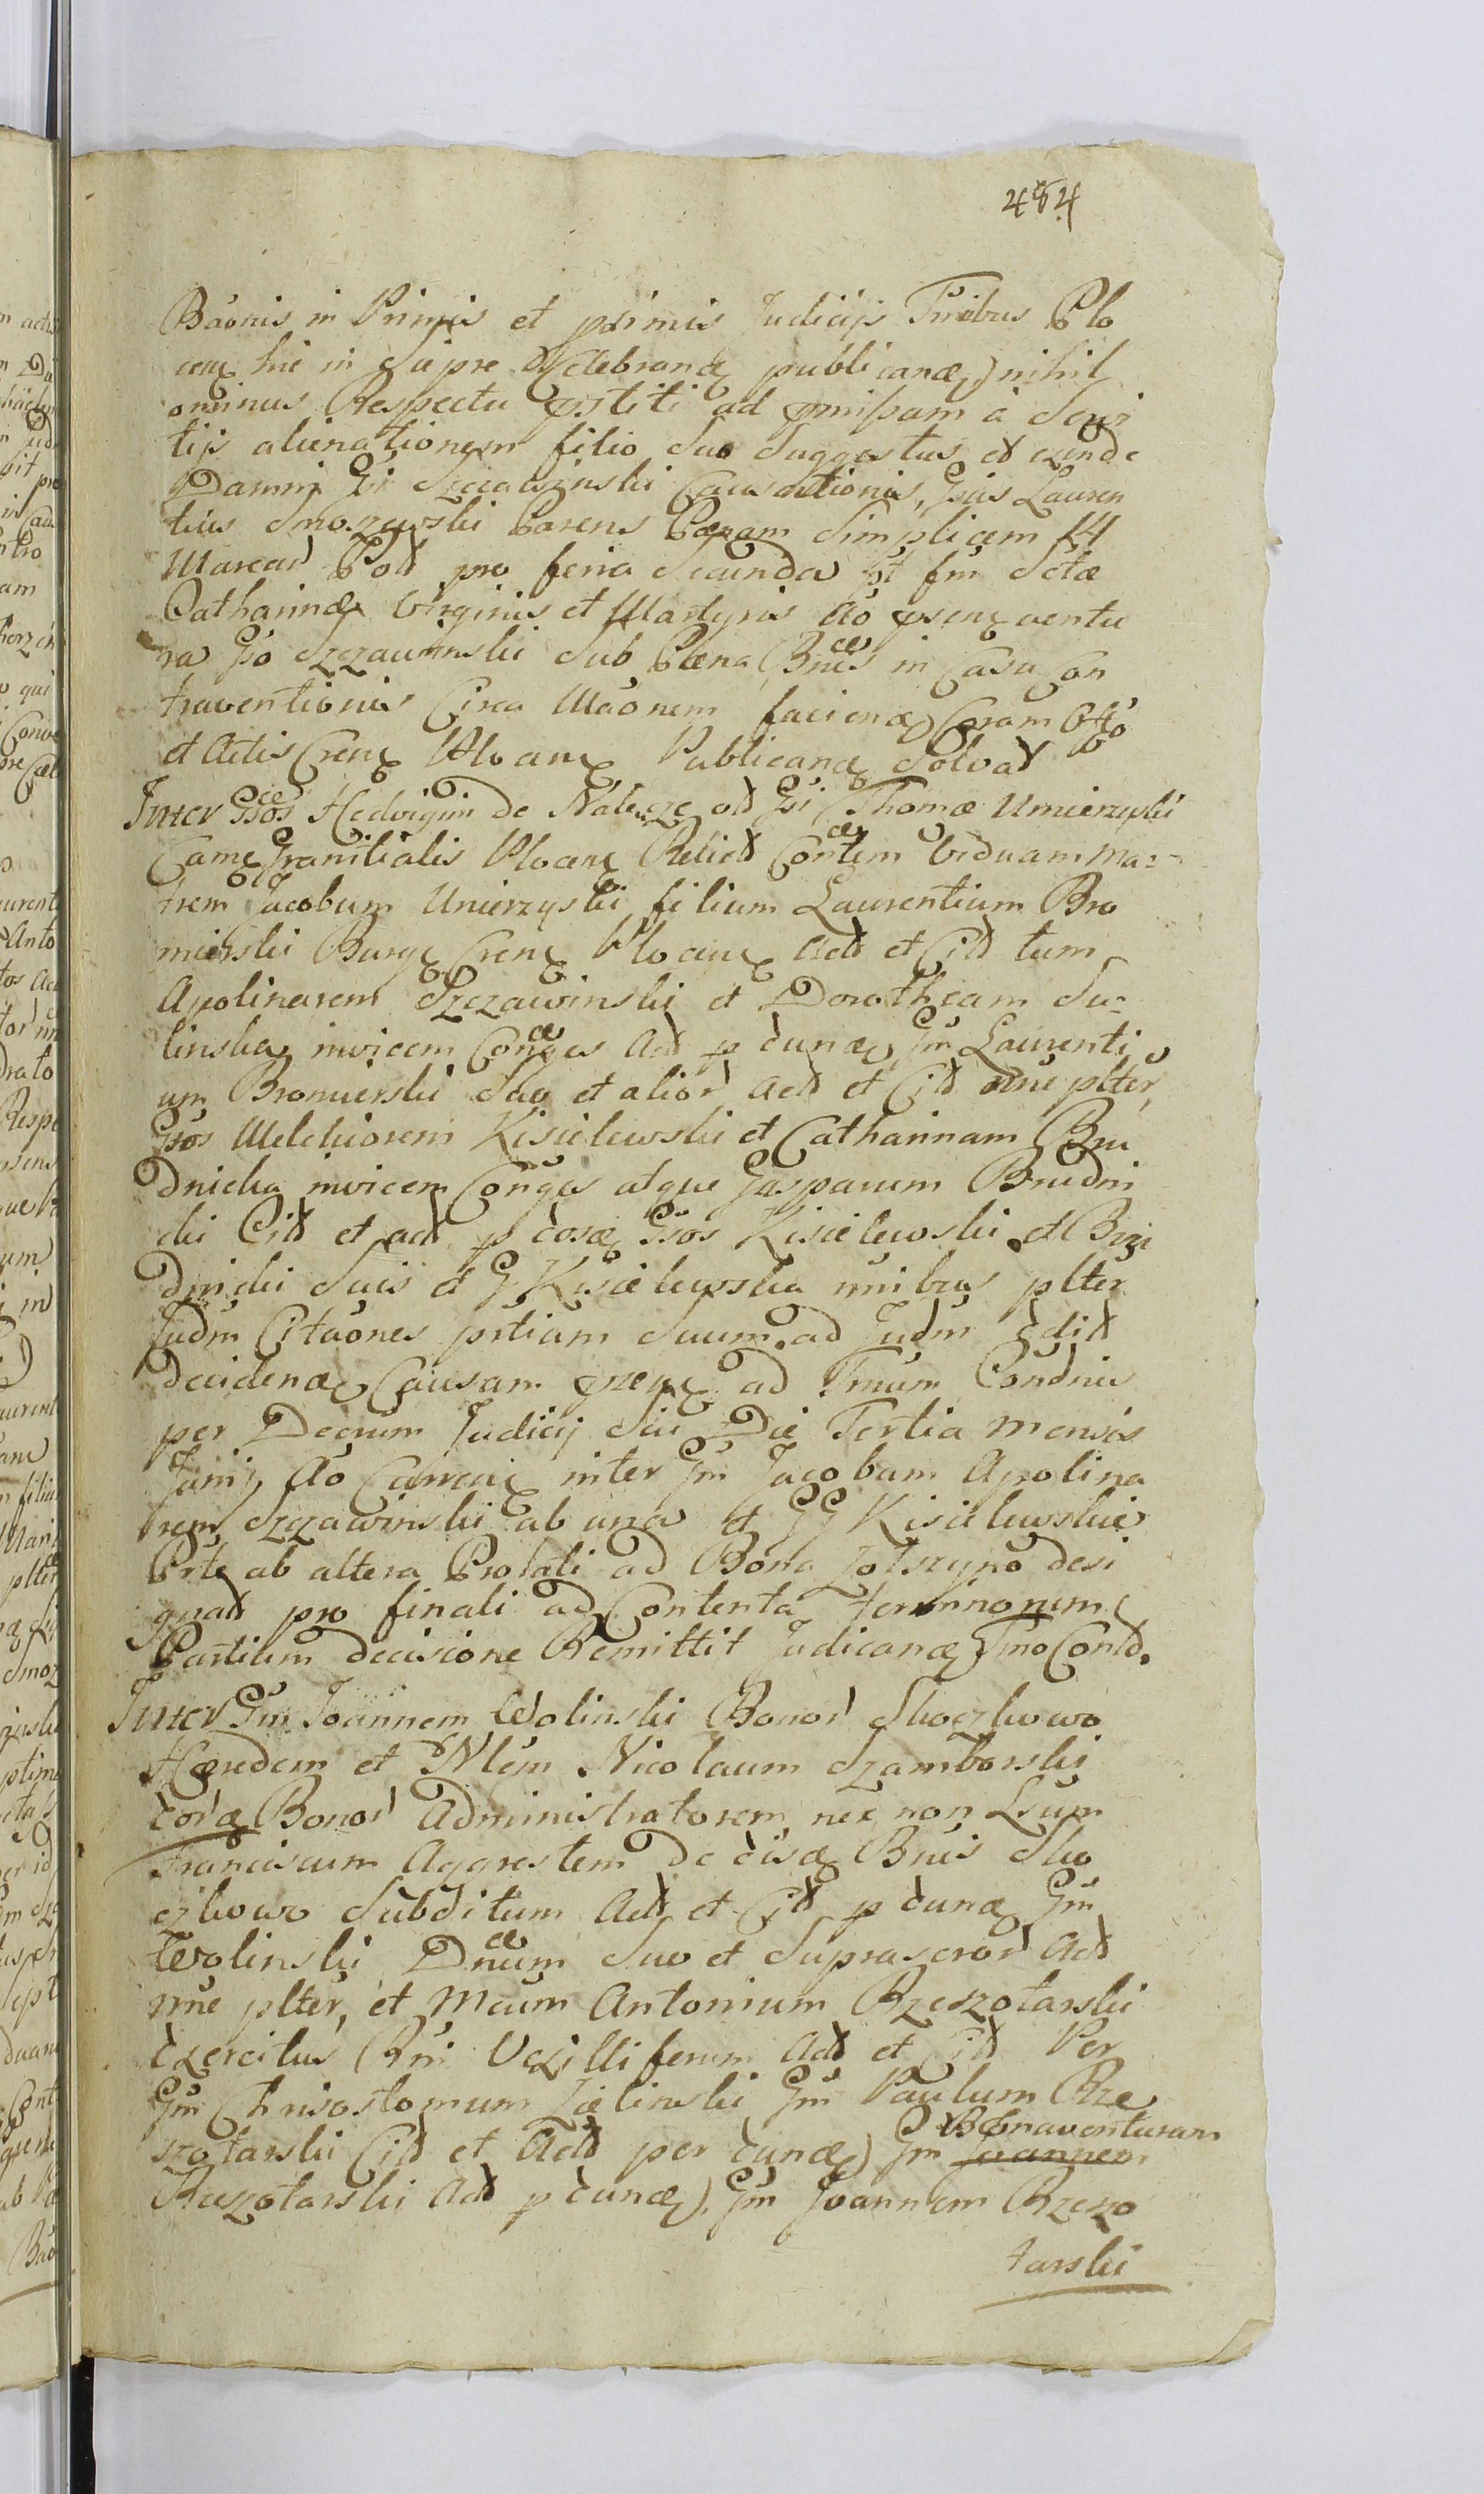 484
Bãonis in Primis et primis Judicijs Tnribus Plo
cen hic in Sapre Celebran publicanæ nihil
ominus Respectu pstiti ad pmissam à Servi
tijs alienationem filio Suo Suggestus et exinde
Damni Gi Szczawinski Causationis, Gsus Lauren
tius Smoszewski Parens Pænam Simplicem 14
Marcar Pol pro feria Secunda pt fm Sctæ
Catharinæ Virginis et Martyris Ao psen ventu
ra Go Szczawinski Sub Pæna Bnis in Casu Con
traventionis Circa Mãonem facienæ Coram Offo
et Actis Cren Plocen Publicanæ Solvat
Inter Gsos Hedvigim de Nałęcze olt Gi Thomæ Umierzyski
Came Granitialis Plocen Relict Contem Viduam ma=
trem Jacobum Unierzyski filium Laurentium Bro
mirski Burg Cren Plocen Act et Cit tum
Apolinarem Szczawinski et Dorotheam Su=
linska invicem Conges Act p cunæ Gm Laurenti
um Bromierski Suo et alior Act et Cit nne plter,
Gsos Melchiorem Kisielewski et Catharinam Bru
dnicka invicem Conges atque Gasparum Brudni
cki Cit et act p cosæ Gsos Kisielewski et Bru
dnicki Suis et G Kisielewska nnibus plter
Judm Citãones prtium Suum ad Judm edit
decidenæ Causam psen ad Tnum Condnis
per Decrum Judicij Sui Die Tertia mensis
Junij Ao Curren inter Gm Jacobum Apolina
rem Szczawinski ab una et GG Kisielewskie
Prte ab altera Prolati ad Bona Zolszyno desi
gnat pro finali ad Contenta terminorum
Partium decisione Remittit Judicanæ Tmo Contd.
Inter Gm Joannem Wolinski Bonor Skoczkowo
Hæredem et Nlem Nicolaum Szamborski
eoræ Bonor Administratorem nec non Lsum
Franciscum Aggrestem De eisæ Bnis Sko
czkowo Subditum Act et Cit p eunæ Gm
Wolinski Dnum Suo et Suprascror Act
nne plter, et Mcum Antonium Rzeszotarski
Exercitus Rni Vexilliferum Act et Cit Per
Gm Chrisostomum Zielinski Gm Paulum Rze
szotarski Cit et Act per eunæ Gm Joannem Bonaventuram
Rzeszotarski Act p eunæ, Gm Joannem Rzeszo
tarski